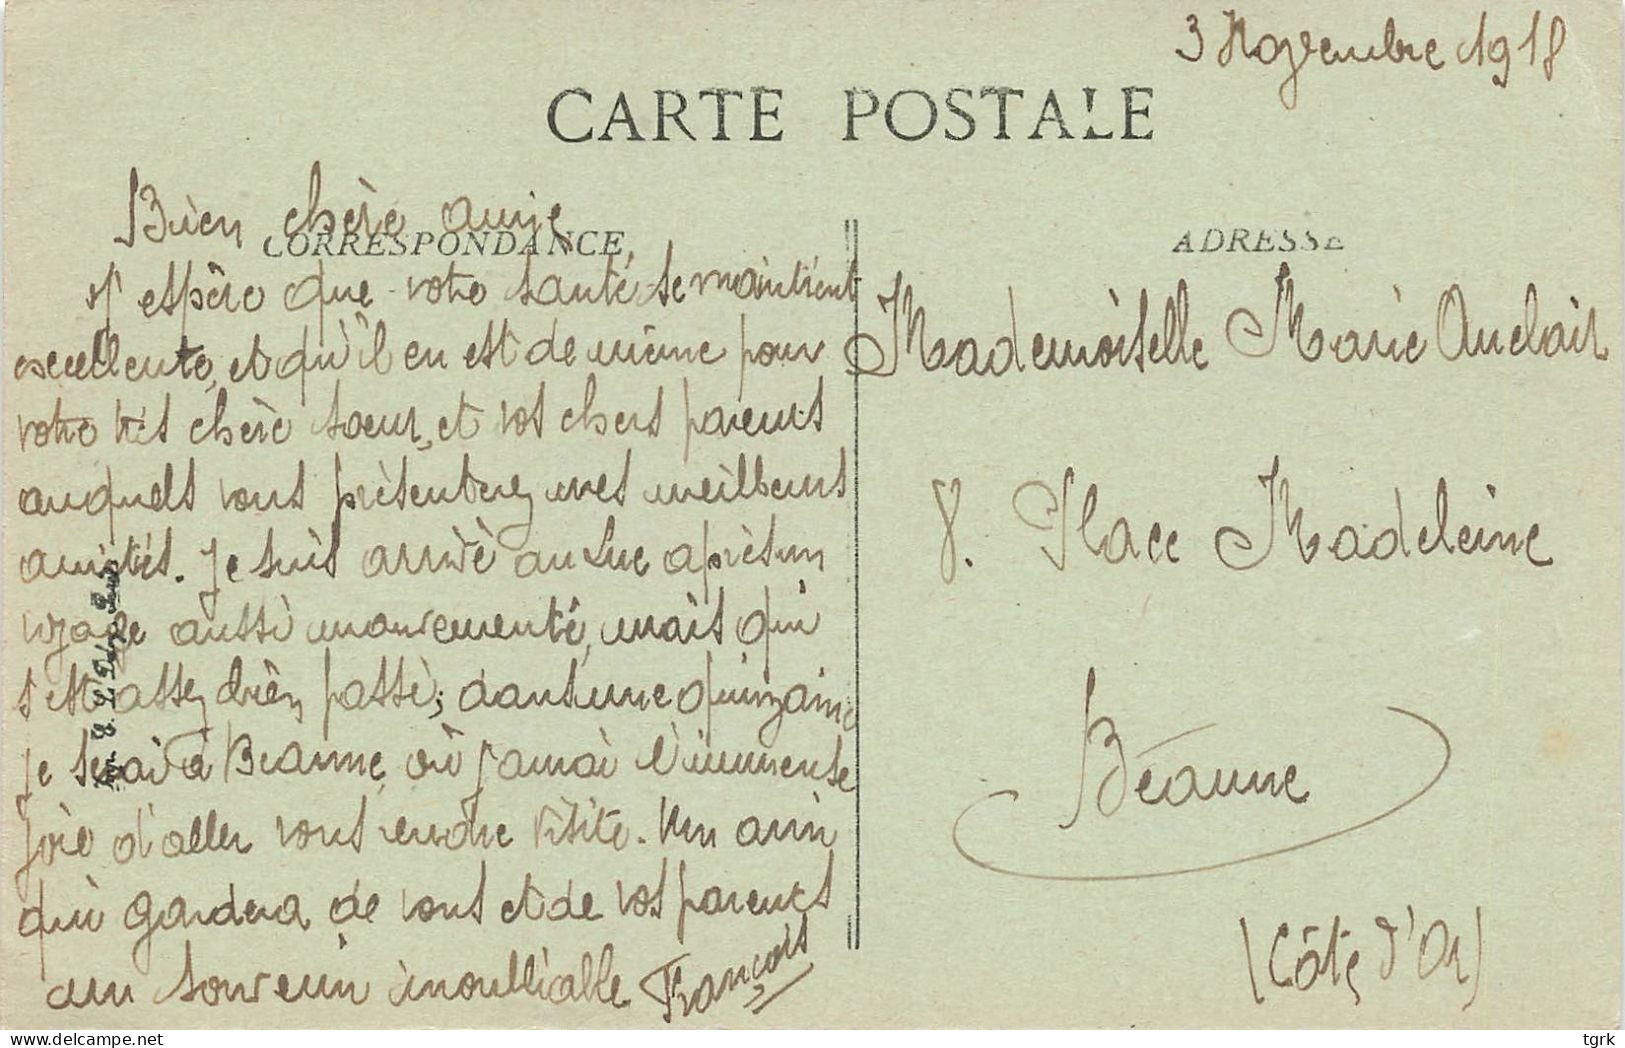 3 Novembre 1918
CARTE POSTALE
Bien chère amie,
CORRESPONDANCE
J'espère que votre santé se maintient
excellente, et qu'il en est de même pour
votre très chère soeur, et vos chers parents
auxquels vous présenterez mes meilleurs
amitiés. Je suis arrivé au Luc après un
voyage aussi mouvementé, mais qui
s'est assez bien passé; dans une quinzaine
je serai à Beaune, où j'aurai l'immense
joie d'aller vous rendre visite. Un ami
qui gardera de vous et de vos parents
un souvenir inoubliable François
ADRESSE
Mademoiselle Marie Auclair
8. Place Madeleine
Béaune
(Côte d'Or)
delcampe.net
tgrk